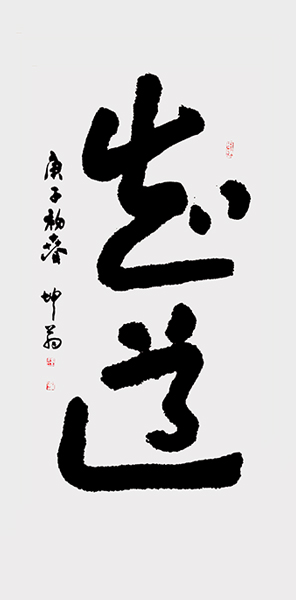 知道
庚子初春 坤翁